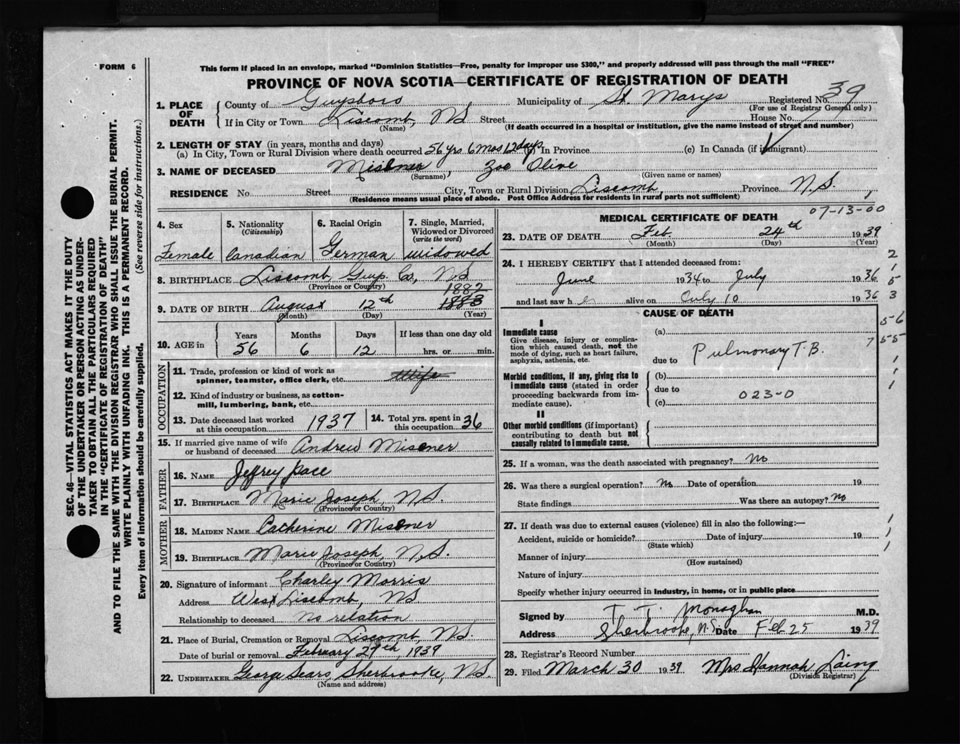 FORM 6
This form if placed in an envelope, marked "Dominion Statistics—Free, penalty for improper use $300," and properly addressed will pass through the mail "FREE"
PROVINCE OF NOVA SCOTIA—CERTIFICATE OF REGISTRATION OF DEATH
1. PLACE OF DEATH
County of Guysboro Municipality of St. Marys Registered No. 39
(For use of Registrar General only)
If in City or Town Liscomb, N.S. Street House No.
(Name) (If death occurred in a hospital or institution, give the name instead of street and number)
2. LENGTH OF STAY (in years, months and days)
(a) In City, Town or Rural Division where death occurred 56 yrs 6 mos 12 days (b) In Province (c) In Canada (if immigrant)
3. NAME OF DECEASED Misener Zoe Olive
(Surname) (Given name or names)
RESIDENCE No. Street City, Town or Rural Division Liscomb, Province N.S.,
(Residence means usual place of abode. Post Office Address for residents in rural parts not sufficient)
4. Sex Female
5. Nationality (Citizenship) Canadian
6. Racial Origin German
7. Single, Married, Widowed or Divorced (write the word) widowed
8. BIRTHPLACE Liscomb, Guy. Co, N.S.
(Province or Country)
1882
9. DATE OF BIRTH August 12th 1883
(Month) (Day) (Year)
10. AGE in Years Months Days If less than one day old
56 6 12 hrs. or min.
OCCUPATION
11. Trade, profession or kind of work as spinner, teamster, office clerk, etc.
12. Kind of industry or business, as cotton-mill, lumbering, bank, etc.
13. Date deceased last worked at this occupation 1937
14. Total yrs. spent in this occupation 36
15. If married give name of wife or husband of deceased Andrew Misener
FATHER
16. NAME Jeffrey Pace
17. BIRTHPLACE Marie Joseph, N.S.
(Province or Country)
MOTHER
18. MAIDEN NAME Catherine Misener
19. BIRTHPLACE Marie Joseph, N.S.
(Province or Country)
20. Signature of informant Charley Morris
Address West Liscomb, N.S
Relationship to deceased No relation
21. Place of Burial, Cremation or Removal Liscomb, N.S.
Date of burial or removal February 27th, 1939
22. UNDERTAKER George Sears, Sherbrooke, N.S.
(Name and address)
MEDICAL CERTIFICATE OF DEATH
07-13-00
23. DATE OF DEATH Feb. 24th 1939
(Month) (Day) (Year)
24. I HEREBY CERTIFY that I attended deceased from:
June 1934 to July 1936
and last saw her alive on July 10 1936
2
1
5
3
CAUSE OF DEATH
I
Immediate cause
Give disease, injury or complication which caused death, not the mode of dying, such as heart failure, asphyxia, asthenia, etc.
(a) Pulmonary T.B.
due to
Morbid conditions, if any, giving rise to immediate cause (stated in order proceeding backwards from immediate cause).
(b)
due to
(c) 023-0
II
Other morbid conditions (if important) contributing to death but not causally related to immediate cause.
5-6
7 5-5
1
1
25. If a woman, was the death associated with pregnancy? No
26. Was there a surgical operation? No Date of operation 19
State findings Was there an autopsy? No
27. If death was due to external causes (violence) fill in also the following:—
Accident, suicide or homicide? Date of injury 19
(State which)
Manner of injury
(How sustained)
Nature of injury
Specify whether injury occurred in industry, in home, or in public place
1
1
1
Signed by T. T. Monaghan M.D.
Address Sherbrooke, N.S. Date Feb 25 1939
28. Registrar's Record Number
29. Filed March 30 1939 Mrs Hannah Laing
(Division Registrar)
SEC. 46—VITAL STATISTICS ACT MAKES IT THE DUTY
OF THE UNDERTAKER OR PERSON ACTING AS UNDER-
TAKER TO OBTAIN ALL THE PARTICULARS REQUIRED
IN THE "CERTIFICATE OF REGISTRATION OF DEATH"
AND TO FILE THE SAME WITH THE DIVISION REGISTRAR WHO SHALL ISSUE THE BURIAL PERMIT.
WRITE PLAINLY WITH UNFADING INK. THIS IS A PERMANENT RECORD.
Every item of information should be carefully supplied. (See reverse side for instructions.)